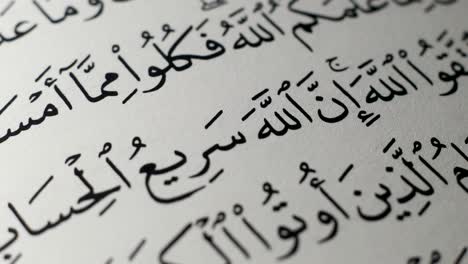 وَمَا
عَلَّمَكُمُ ٱللَّهُ فَكُلُوا۟ مِمَّآ أَمْسَ
تَّقُوا۟ ٱللَّهَ ۚ إِنَّ ٱللَّهَ سَرِيعُ ٱلْحِسَابِ
ٱلَّذِينَ أُوتُوا۟ ٱلْكِ